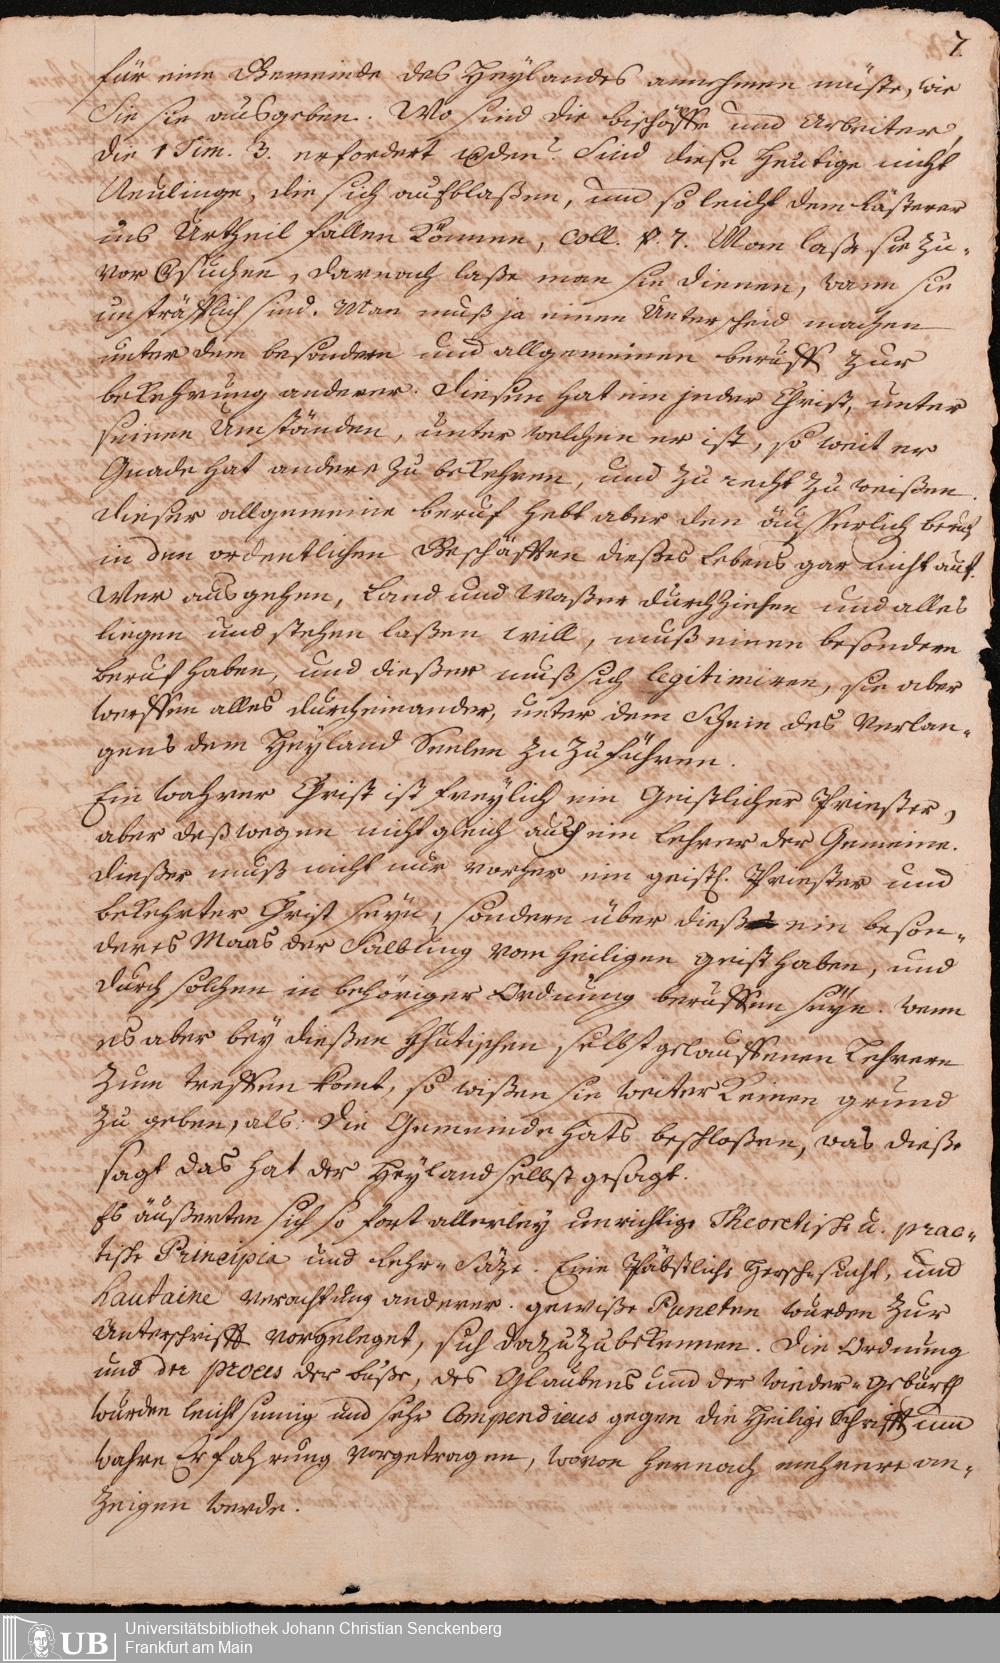 7.
für eine Gemeinde des Heylandes annehmen müste, wie
Sie sie ausgeben. Wo sind die bischöffe und Arbeiter,
die 1 Tim. 3. erfordert werden? Sind diese heutige nicht
Neulinge, die sich aufblaßen, und so leicht dem Lästerer
ins Urtheil fallen können, coll. v. 7. Man laße sie zu-
vor Versuchen, darnach laße man sie dienen, wann sie
unsträfflich sind. Man muß ja einen Unterscheid machen
unter dem besondern und allgemeinen beruff zur
bekehrung anderer. Diesen hat ein jeder Christ, unter
seinen Umständen, unter welchen er ist, so weit er
Gnade hat andere zu bekehren, und zu recht zu weißen.
Dieser allgemeine beruf hebt aber den äusserlich beruf
in den ordentlichen Geschäfften dießes Lebens gar nicht auf.
Wer ausgehen, Land und Waßer durchziehen und alles
liegen und stehen laßen will, muß einen besondern
beruf haben, und dießer muß sich legitimiren, sie aber
werffen alles durcheinander, unter dem Schein des Verlan-
gens dem Heyland Seelen zuzuführen.
Ein wahrer Christ ist freylich ein Geistlicher Priester,
aber deßwegen nicht gleich auch ein Lehrer der Gemeine.
Dießer muß nicht nur vorher ein geistl. Priester und
bekehrter Christ seyn, sondern über dieß ein beson-
deres Maas der Salbung vom heiligen geist haben, und
durch solchen in behöriger Ordnung beruffen seyn. wenn
es aber bey dießen Hhutischen, selbst gelauffenen Lehrern
zum treffen komt, so wißen sie weiter keinen grund
zu geben, als: die Gemeinde hats beschloßen, was dieße
sagt das hat der Heyland selbst gesagt.
Es äußerten sich so fort allerley unrichtige Theoretische u. prac-
tische Principia und Lehr-Säze. Eine Päbstliche Herschsucht, und
hautaine verachtung anderer. gewiße Puncten wurden zur
Unterschrifft vorgeleget, sich dazu zu bekennen. Die Ordnung
und der proces der buße, des Glaubens und der wieder-Geburth
wurden leichtsinnig und sehr Compendieus gegen die heilige Schrifft und
wahre Erfahrung vorgetragen, wovon hernach mehrere an-
zeigen werde.
UB
Universitätsbibliothek Johann Christian Senckenberg
Frankfurt am Main